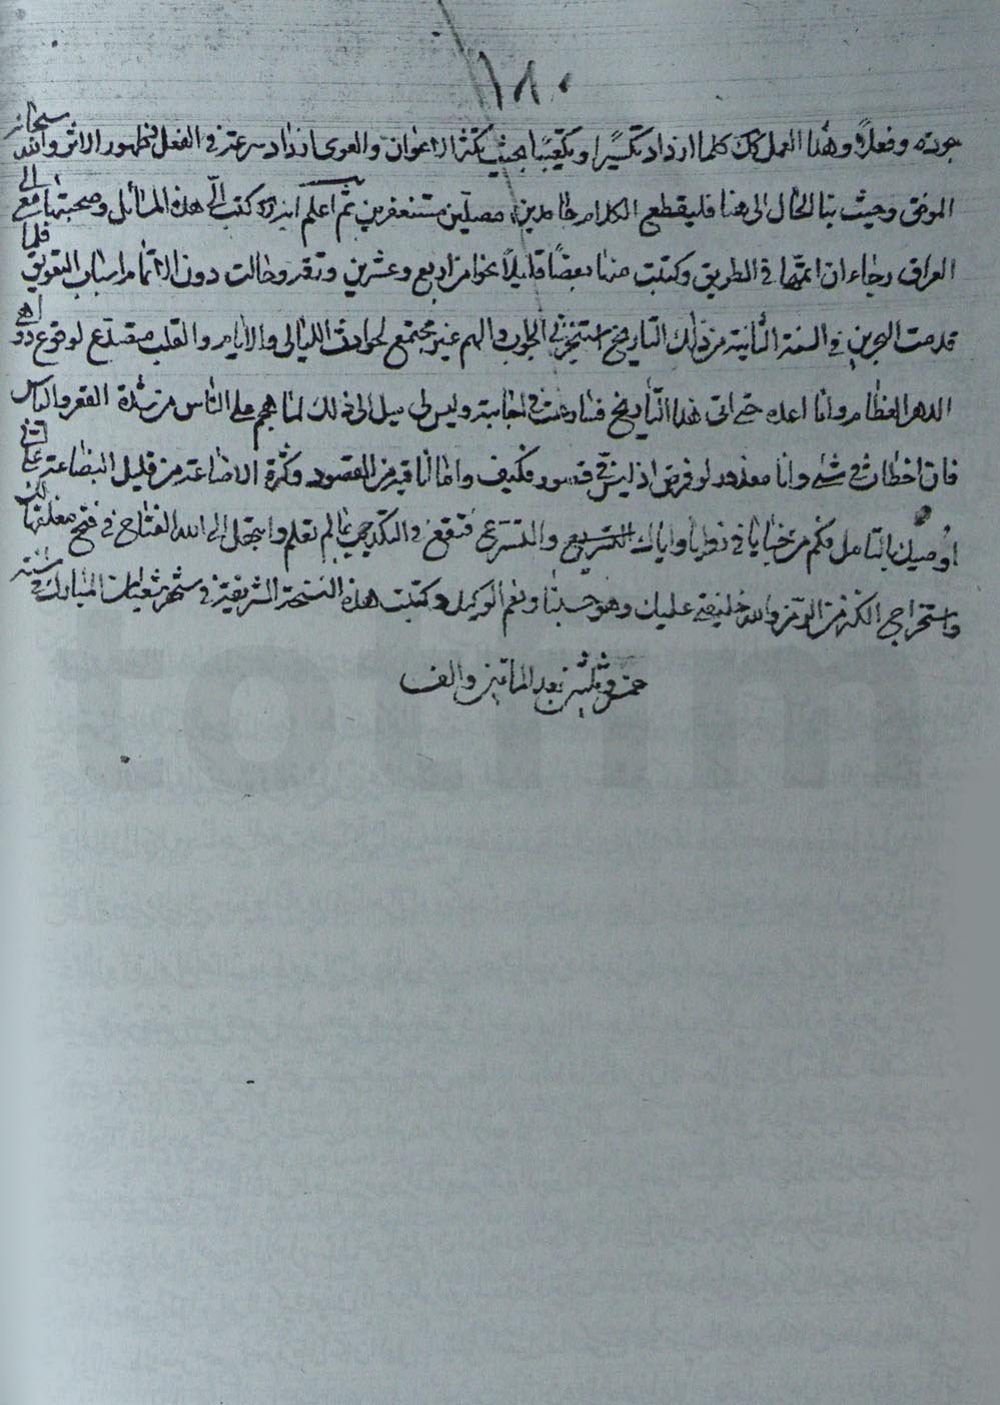 ١٨٠
جودة وفعلاً وهذا العمل كلما ازداد تكسيرا وتكعيبا بحيث تكثر الاعوان والقوى ازداد سرعة في الفعل وظهور الاثر والله سبحانه
الموفق وحيث بنا الحال الى هنا فليقطع الكلام حامدين مصلين مستغفرين ثم اعلم انه كتب اليّ هذه المسائل وصحبتها معي الى
العراق رجاء ان اتمها في الطريق وكتبت منها بعضا قليلا نحوا من اربع وعشرين وحالت دون الاتمام اسباب التعويق فلما
قدمت البحرين في السنة الثانية من ذلك التاريخ استنجزني الجواب والهم غير مجتمع لحوادث الليالي والايام والقلب متصدع لوقوع دواهي
الدهر العظام وانا اعده حتى اتى هذا التاريخ فسارعت في اجابته وليس لي ميل الى ذلك لما هجم على الناس من شدة الفقر والباس
فان اخطات في شئ وانا معذور لو فرض اذ ليس في قصور فكيف وانا انا فيه من القصور وكثرة الاضاعة من قليل البضاعة على انني
اوصيك بالتامل فكم من خبايا في زوايا واياك والتسرع فتقع في التكذيب بما لم تعلم وابتهل الى الله الفتاح في فتح مغلقها لك
واستخراج الكنز من الرمز والله خليفتي عليك وهو حسبنا ونعم الوكيل وكتبت هذه النسخة الشريفة في شهر شعبان المبارك في سنة
خمس وثلثين بعد الماتين والف